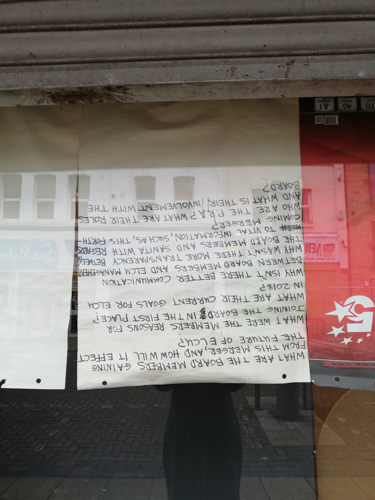 WHAT ARE THE BOARD MEMBERS GAINING
FROM THIS MERGER, AND HOW WILL IT EFFECT
THE FUTURE OF ELCH?
WHAT WERE THE MEMBERS REASONS FOR
JOINING THE BOARD IN THE FIRST PLACE?
WHAT ARE THEIR CURRENT GOALS FOR ELCH
IN 2018?
WHY ISN'T THERE BETTER COMMUNICATION
BETWEEN BOARD MEMBERS AND ELCH MANAGEMENT
WHY WASN'T THERE MORE TRANSPARENCY BETWEEN
THE BOARD MEMBERS AND SANITA WITH REGARDS
TO VITAL INFORMATION, SUCH AS, THIS FORTH-
COMING MERGER?
WHO ARE THE P.R.A? WHAT ARE THEIR ROLES
AND WHAT IS THEIR INVOLVEMENT WITH THE
BOARD?